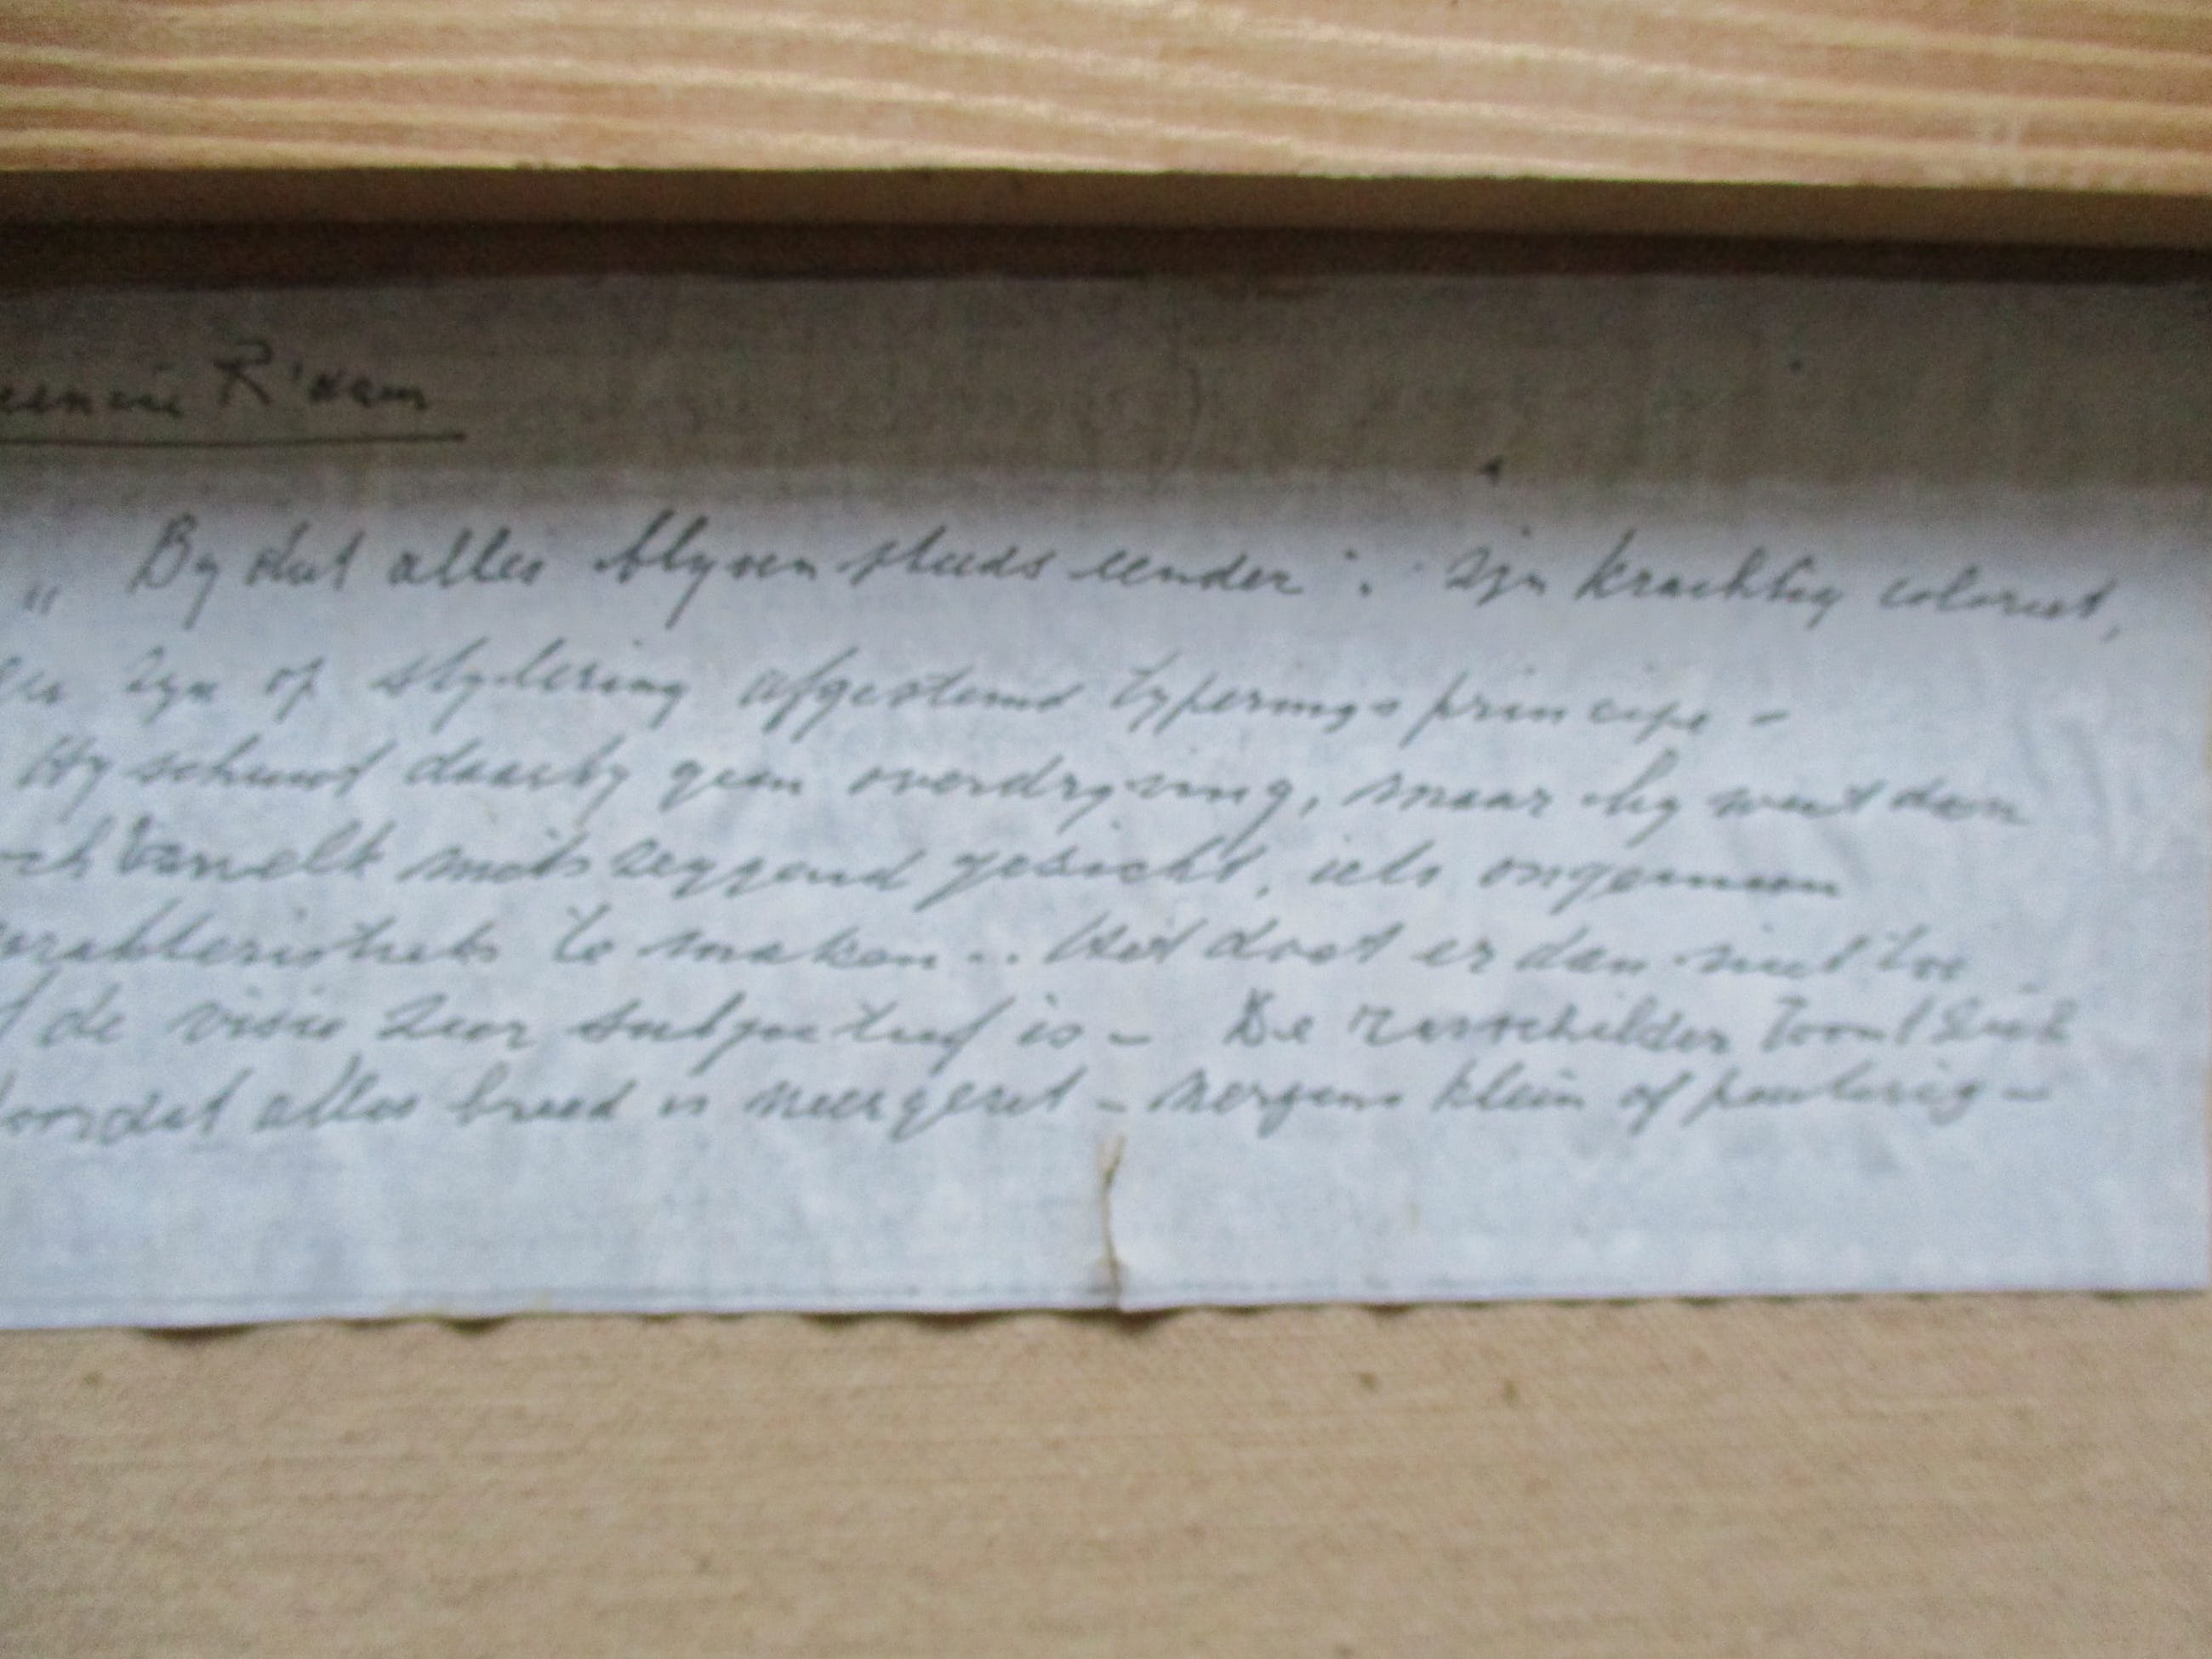 R'dam
„ By dat alles blyven steeds eender : zyn krachtig coloriet,
zyn op stylering afgestemd typerings principe -
Hy schuwt daarby geen overdryving, maar hy weet dan
niets zeggend gezicht, iets ongemeen
te maken... Het doet er dan niet toe
de visie zeer subjectief is - De rasschilder toont zich
doordat alles breed is neergezet - nergens klein of peuterig -